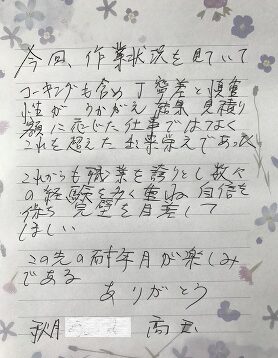 今回、作業状況を見ていて
コーキングも含め丁寧差と慎重
性がうかがえ 結果 見積り
額に応じた仕事ではなく
これを超えた出来栄えであった
これからも職業を誇りとし数々
の経験を多く重ね 自信を
持ち 完璧を目差し
ほしい
この先の耐年月が楽しみ
である
ありがとう
秋月